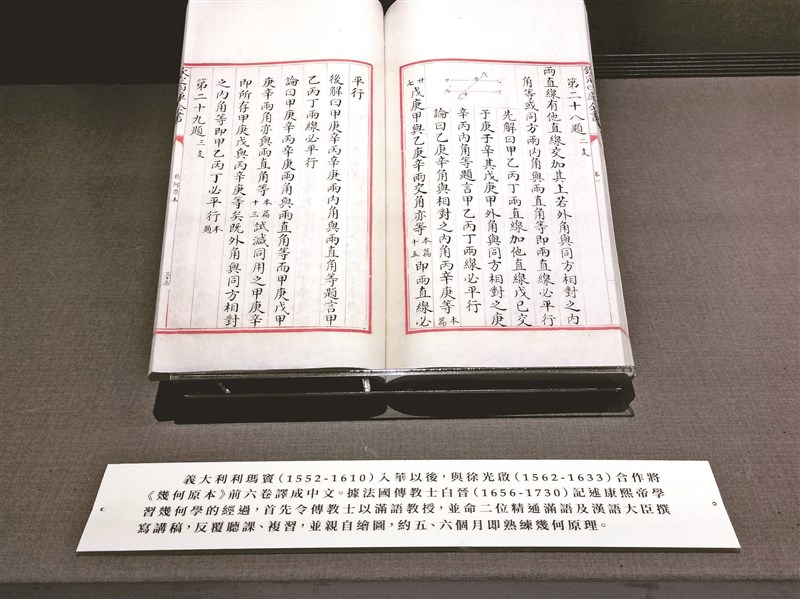 欽定四庫全書
卷一
第二十八題二支
兩直線有他直線交加其上若外角與同方相對之內
角等或同方兩內角與兩直角等即兩直線必平行
先解曰甲乙丙丁兩直線加他直線戊己交
于庚于辛其戊庚甲外角與同方相對之庚
辛丙內角等題言甲乙丙丁兩線必平行
論曰乙庚辛角與相對之內角丙辛庚等本篇
廿七戊庚甲與乙庚辛兩交角亦等本篇十五即兩直線必
平行
後解曰甲庚辛丙辛庚兩內角與兩直角等題言甲
乙丙丁兩線必平行
論曰甲庚辛丙辛庚兩角與兩直角等而甲庚戊甲
庚辛兩角亦與兩直角等本篇十三試減同用之甲庚辛
即所存甲庚戊與丙辛庚等矣既外角與同方相對
之內角等即甲乙丙丁必平行本題
第二十九題三支
欽定四庫全書
幾何原本
義大利利瑪竇(1552-1610)入華以後，與徐光啟(1562-1633)合作將
《幾何原本》前六卷譯成中文。據法國傳教士白晉(1656-1730)記述康熙帝學
習幾何學的經過，首先令傳教士以滿語教授，並命二位精通滿語及漢語大臣撰
寫講稿，反覆聽課、複習，並親自繪圖，約五、六個月即熟練幾何原理。